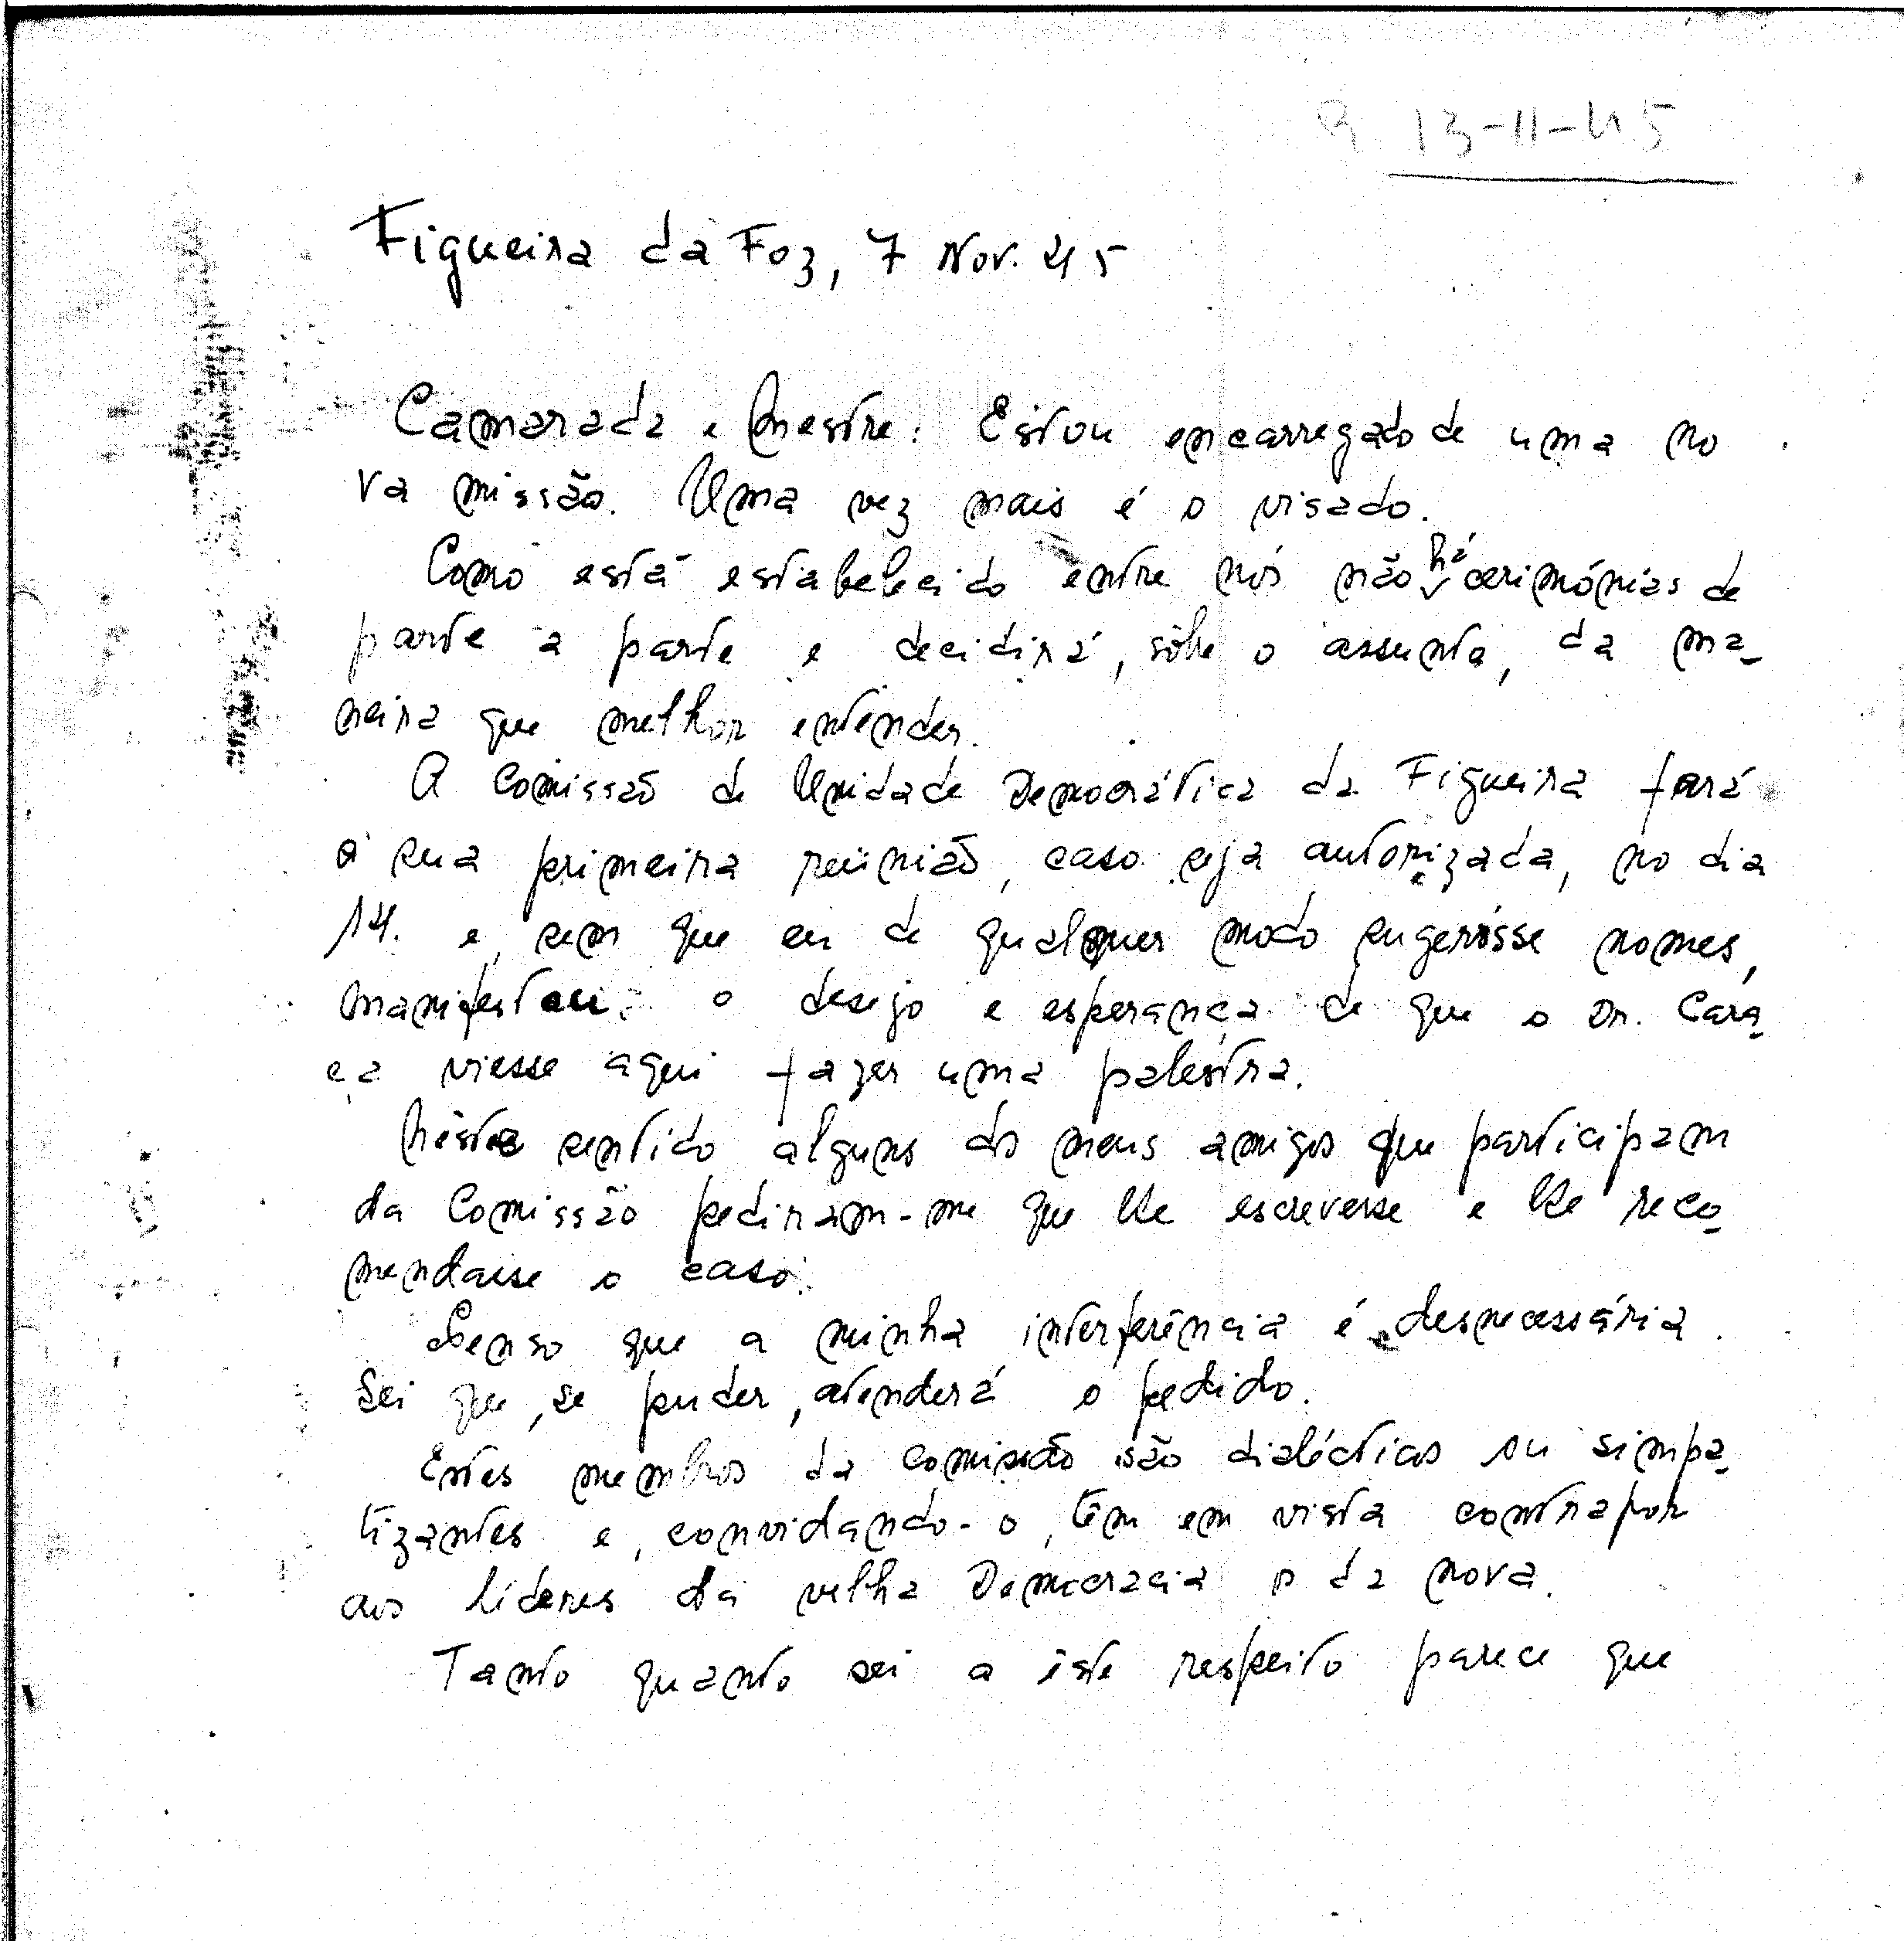 R 13-11-45
Figueira da Foz, 7 Nov. 45
Camarada e Mestre: Estou encarregado de uma no
va missão. Uma vez mais é o visado.
Como está estabelecido entre nós não há cerimónias de
parte a parte e decidirá, sôbre o assunto, da ma-
neira que melhor entender.
A Comissão de Unidade Democrática da Figueira fará
a sua primeira reünião, caso seja autorizada, no dia
14. e, sem que eu de qualquer modo sugerisse nomes,
manifestou o desejo e esperança de que o Dr. Cara-
ça viesse aqui fazer uma palestra.
Nêste sentido alguns dos meus amigos que participam
da Comissão pediram-me que lhe escrevesse e lhe reco-
mendasse o caso.
Penso que a minha interferência é desnecessária.
Sei que, se puder, atenderá o pedido.
Estes membros da comissão são dialécticos ou simpa-
tizantes e, convidando-o, têm em vista contrapor
aos líderes da velha Democracia o da nova.
Tanto quanto sei a êste respeito parece que